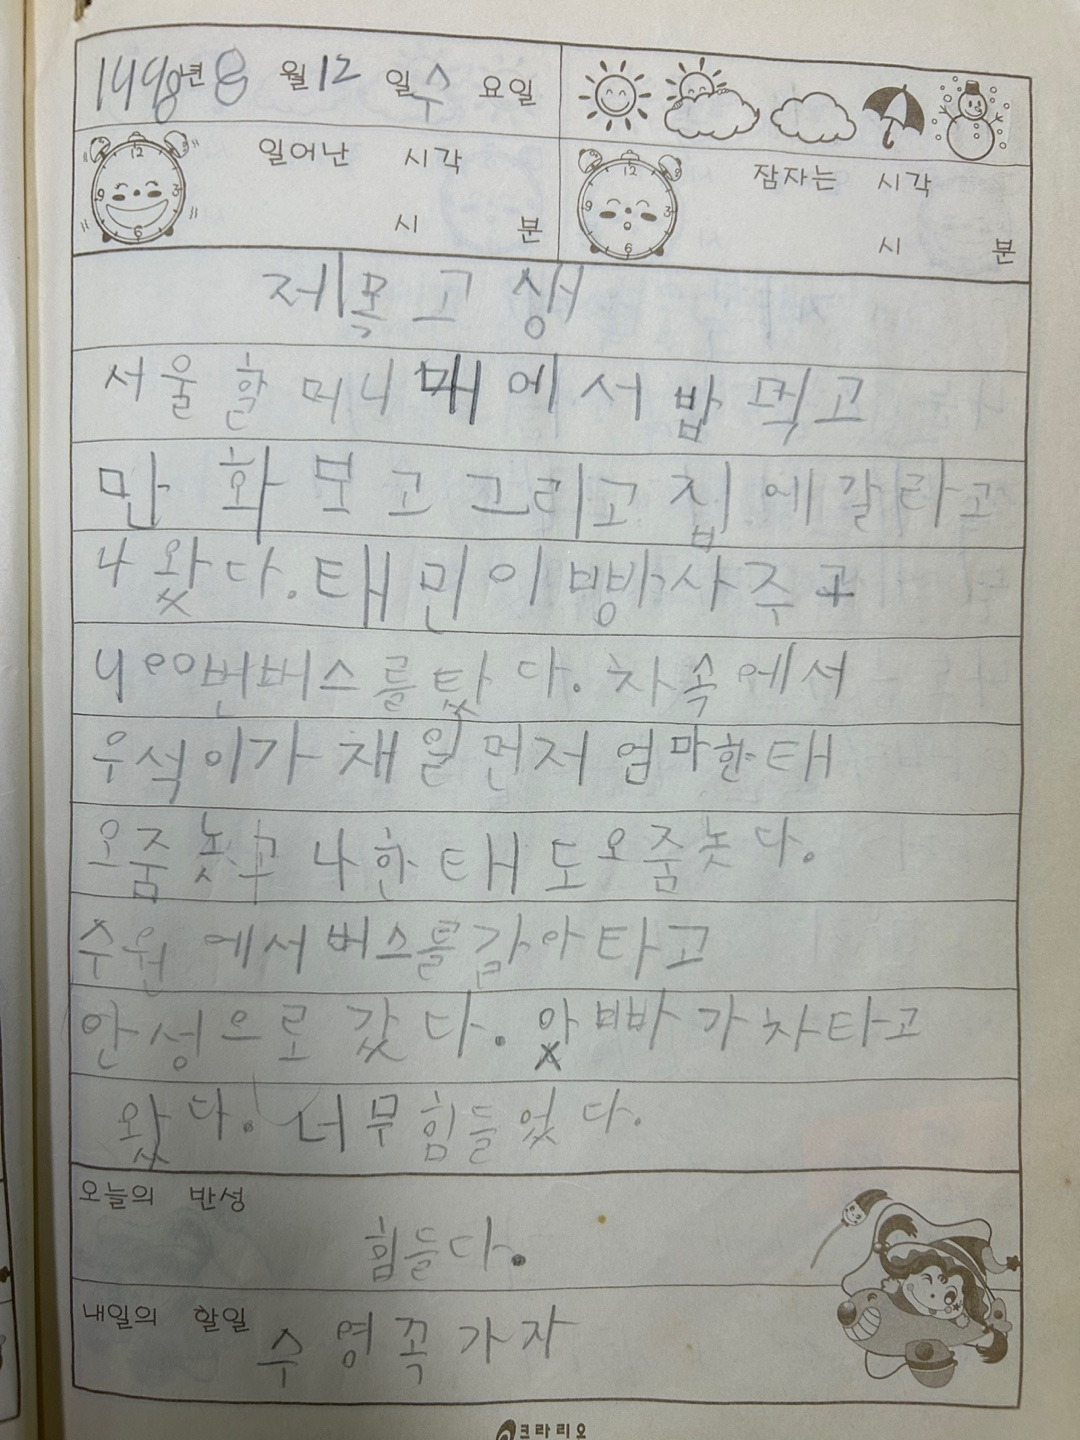 1998년 8월 12일 수요일
일어난 시각
시 분
잠자는 시각
시 분
제목 고생
서울 할머니 때에서 밥 먹고
만화 보고 그리고 집에 갈라고
나왔다. 태민이 빵사주고
400번버스를 탔다. 차속에서
우석이가 재일먼저 엄마한태
오줌놋고 나한태도 오줌놋다.
수원에서 버스를 갈아타고
안성으로 갔다. 앞빠가 차타고
왔다. 너무 힘들었다.
오늘의 반성
힘들다.
내일의 할일
수영꼭가자
크라리오